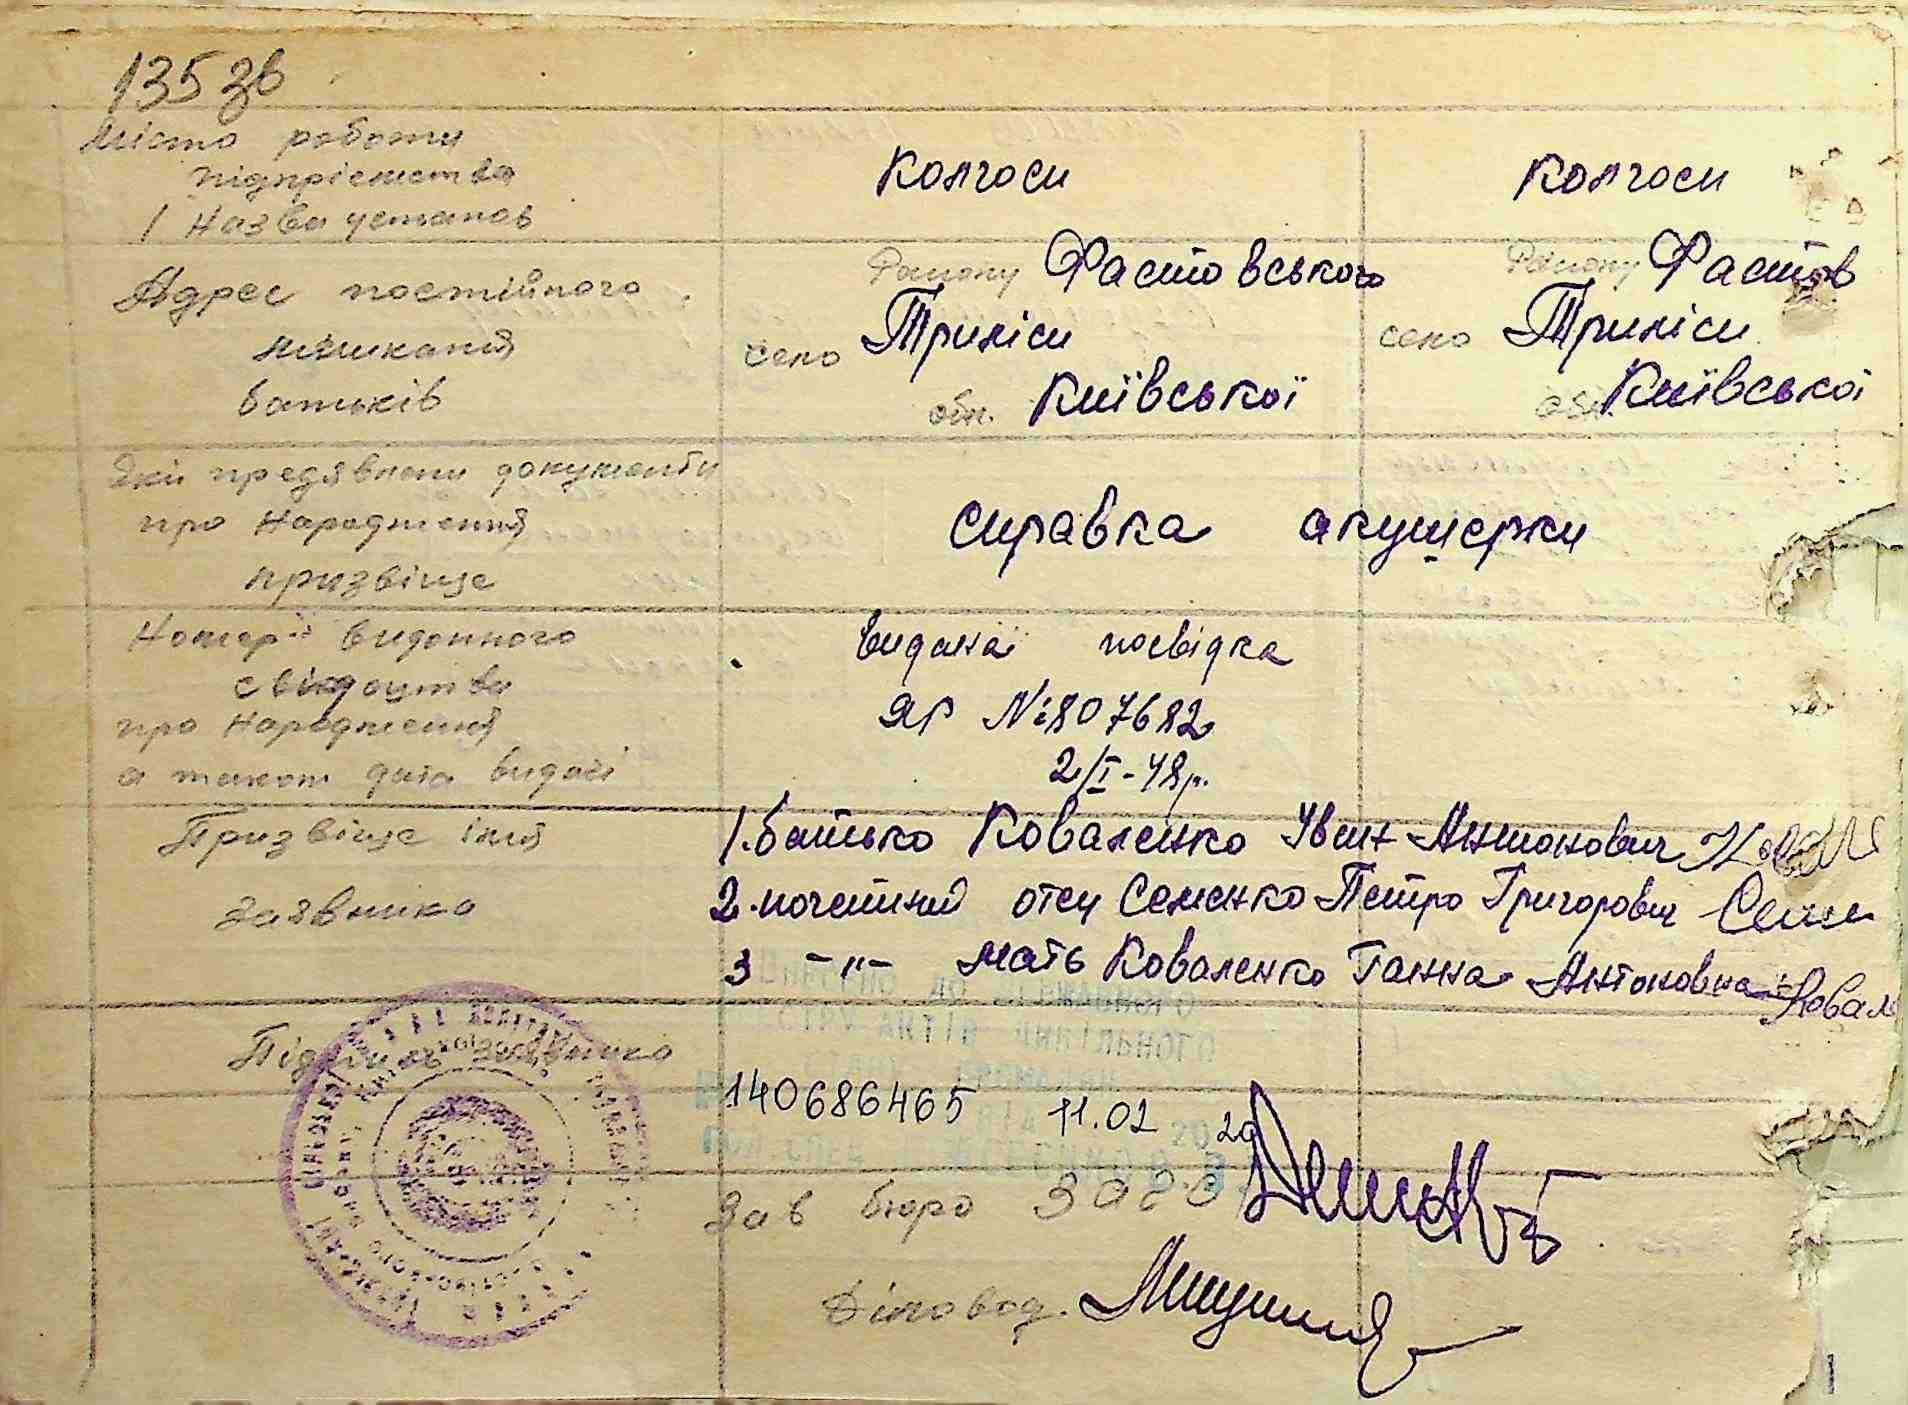 135 зв
Місто роботи
підприємства
і Назва установ
колгосп
колгосп
Адрес постійного
мешканя
батьків
Району Фастовського
село Триліси
обл. Київської
Району Фастів
село Триліси
обл. Київської
Які предявлени документи
про Народження
призвіще
справка акушерки
Номер виданного
свідоцтва
про Народження
а також дата видачі
видана посвідка
ЯР № 807682
2/I-48р.
Призвіще імя
заявника
1. батько Коваленко Іван Антонович
2. почетний отец Семенко Петро Григорович
3 -"- мать Коваленко Ганна Антоновна
Підпись заявника
140686465 11.02 2020
Зав бюро ЗАГС
Діловод.